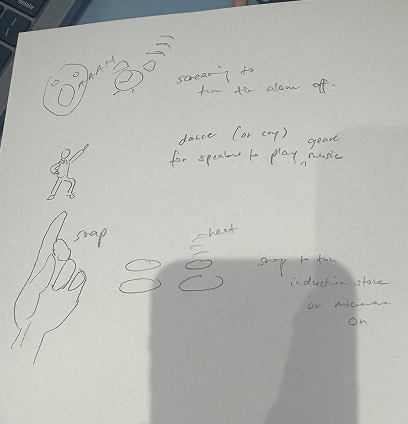 AAAAH
screaming to
turn the alarm off.
dance (or cry) genre
for speakers to play ^ music
snap
heat
snap to turn
induction stove
or microwave
on